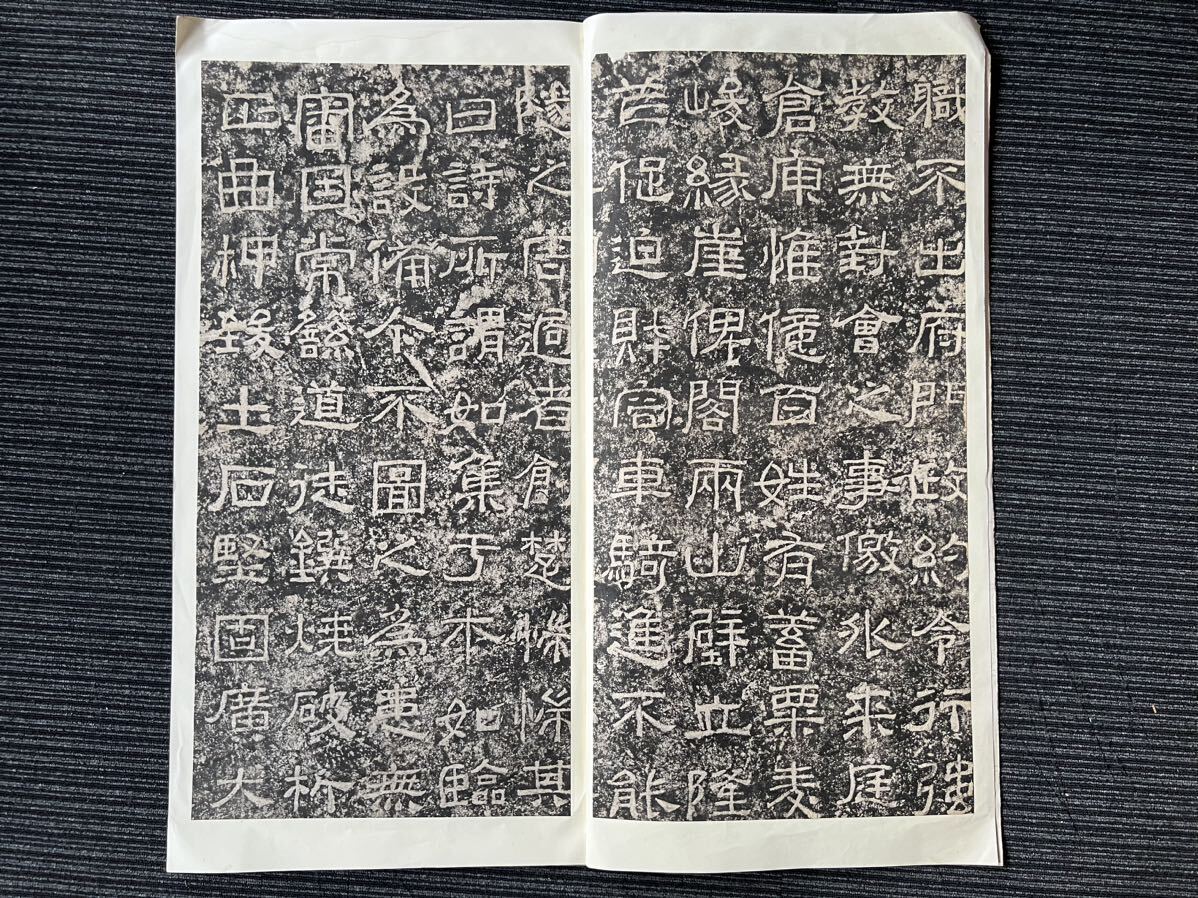 職不出府門政約令行強
教無對會之事儌外來庭
倉庾惟億百姓有蓄粟麦
峻緣崖俾閣兩山壁立隆
苲促迫財容車騎進不能
隧之害過者創楚惴惴其
曰詩所謂如集于木如臨
為設備今不圖之為患無
審因常繇道徒鐉燒破析
正曲柙致土石堅固廣大